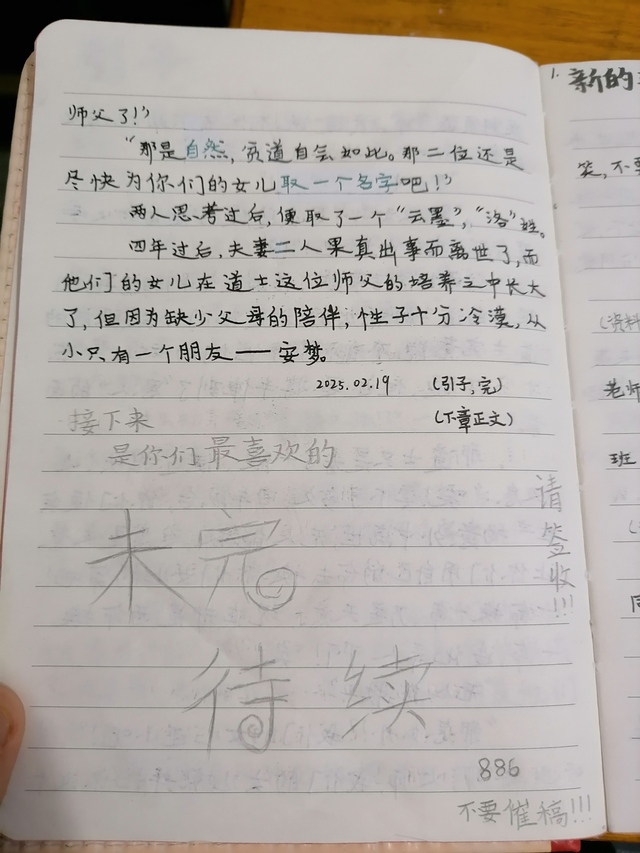 师父了!”
“那是自然,贫道自会如此。那二位还是
尽快为你们的女儿取一个名字吧!”
两人思考过后,便取了一个“云墨”,“洛”姓。
四年过后,夫妻二人果真出事而离世了,而
他们的女儿在道士这位师父的培养之中长大
了,但因为缺少父母的陪伴,性子十分冷漠,从
小只有一个朋友——安梦。
2025.02.19 (引子,完)
(下章正文)
接下来
是你们最喜欢的
未完
待续
请签收!!!
886
不要催稿!!!
1. 新的
笑,不要
(资料
老师
班
(
同